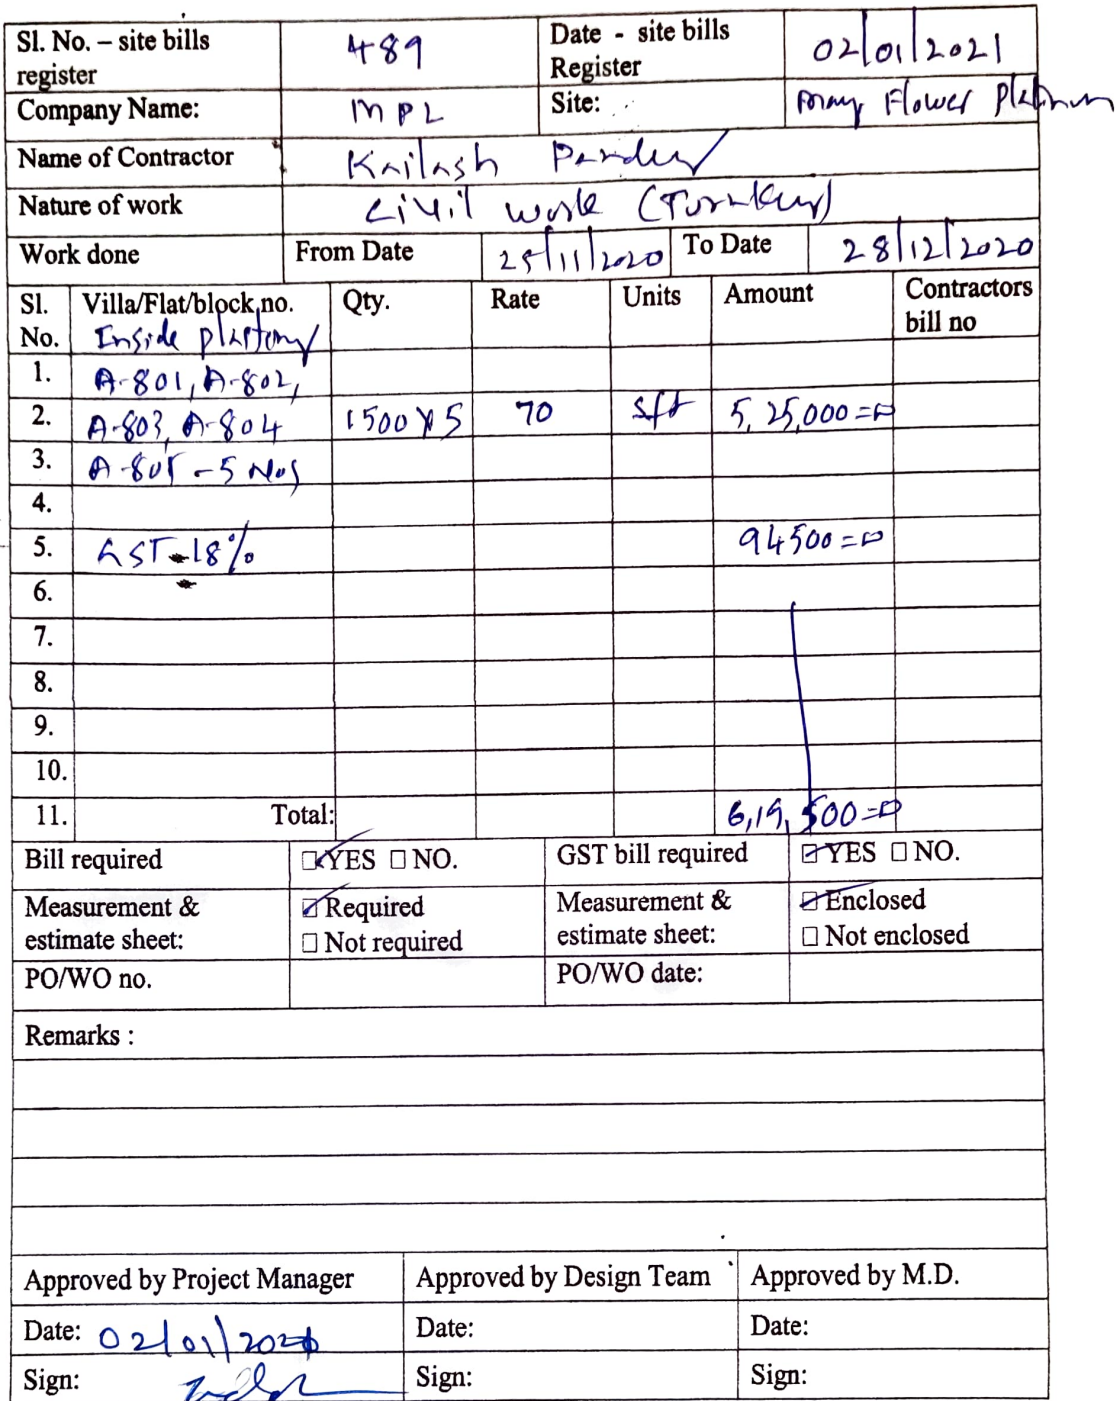 Sl. No. – site bills register 489 Date - site bills Register 02/01/2021
Company Name: MPL Site: May Flower Platinum
Name of Contractor Kailash Pandey
Nature of work Civil work (Turnkey)
Work done From Date 25/11/2020 To Date 28/12/2020
Sl. No. Villa/Flat/block no. Qty. Rate Units Amount Contractors bill no
Inside
1. A-801, A-802,
2. A-803, A-804 1500 x 5 70 sft 5,25,000=0
3. A-805 - 5 Nos
4.
5. GST-18% 94500=0
6.
7.
8.
9.
10.
11. Total: 6,19,500=0
Bill required ☑ YES ☐ NO. GST bill required ☑ YES ☐ NO.
Measurement & estimate sheet: ☑ Required ☐ Not required Measurement & estimate sheet: ☑ Enclosed ☐ Not enclosed
PO/WO no. PO/WO date:
Remarks :
Approved by Project Manager Approved by Design Team Approved by M.D.
Date: 02/01/2021 Date: Date:
Sign: Sign: Sign: